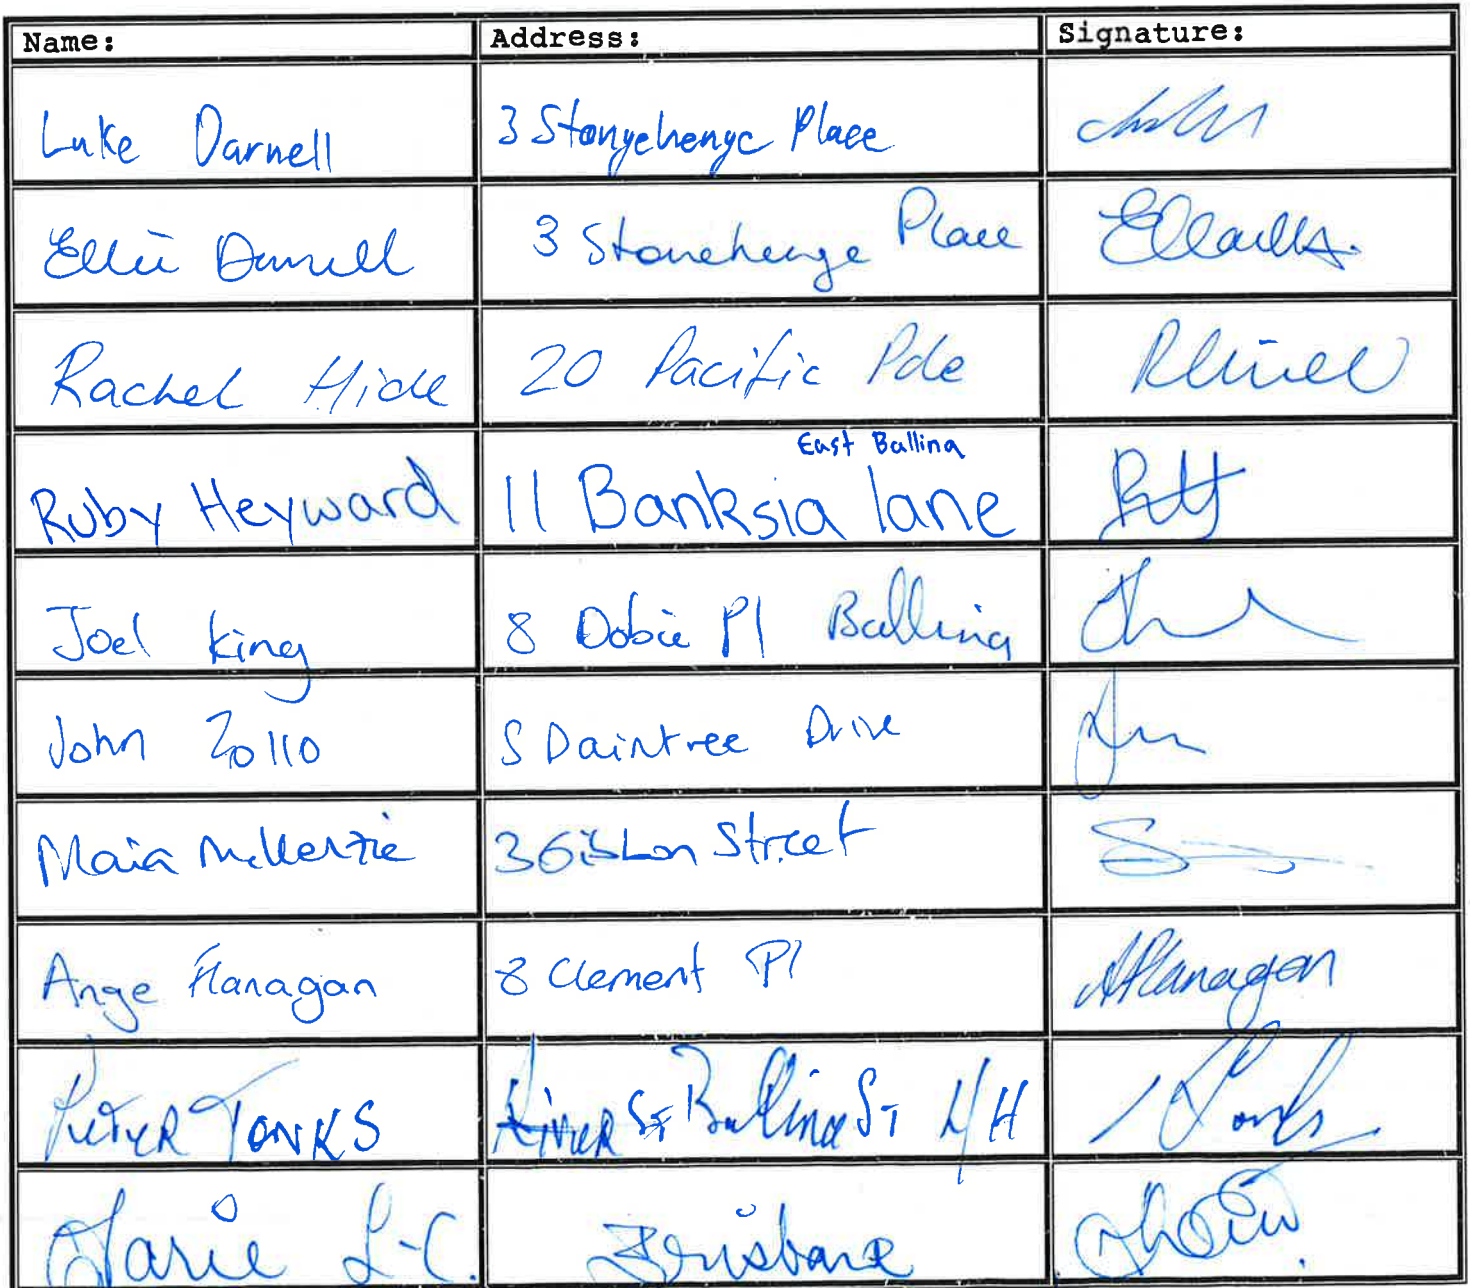 Name: Address: Signature:
Luke Darnell 3 Stonyehenge Place
Ellie Darnell 3 Stonehenge Place
Rachel Hide 20 Pacific Pde
East Ballina
Ruby Heyward 11 Banksia lane
Joel King 8 Dobie Pl Ballina
John Zollo 5 Daintree Drive
Maia McKenzie 36 Street
Ange Flanagan 8 Clement Pl AFlanagan
Peter Tonks River St Ballina St L/H
L-C. Brisbane